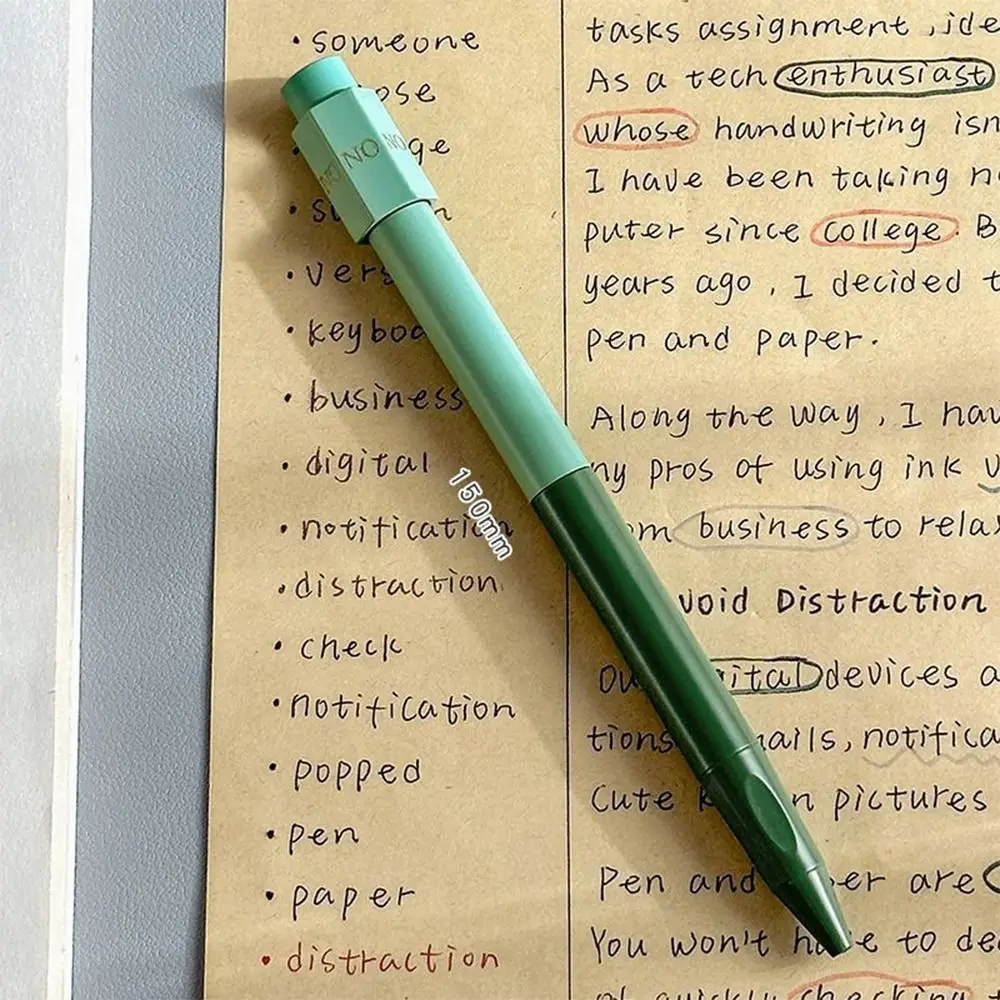 • someone
• business
• digital
• notification
• distraction
• check
• notification
• popped
• pen
• paper
• distraction
NO NO
150mm
tasks assignment, ide
As a tech enthusiast
whose handwriting isn
I have been taking n
puter since college. B
years ago, I decided t
pen and paper.
Along the way, I hav
ny pros of using ink
business to relax
void Distraction
devices a
tions mails, notifica
Cute pictures
Pen and are
You won't to de
of quickly checking